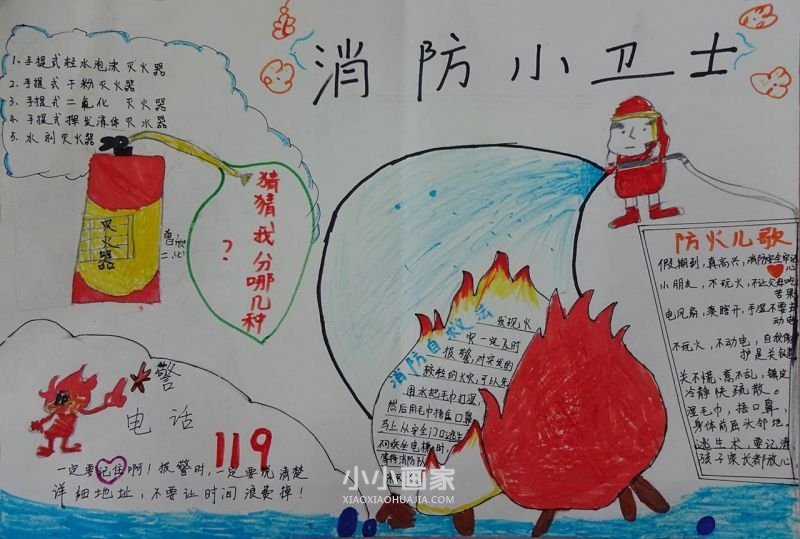 消防小卫士
1、手提式轻水泡沫灭火器
2、手提式干粉灭火器
3、手提式二氧化 灭火器
4、手提式挥发液体灭火器
5、水剂灭火器
灭火器
猜猜我分哪几种
?
防火儿歌
假期到,真高兴,消防安全牢记心
小朋友,不玩火,不让父母吃
苦果
电风扇,莫瞎开,手湿不要去
动电
不玩火,不动电,自我保
护是关键
关不慌,意不乱,镇定
冷静快疏散。
湿毛巾,捂口鼻,
身体前匐头邻地。
逃生术,要记清
孩子家长都放心
消防自救法
发现火
灾一定及时
报警,对突发的
较轻的火灾,可以先
用水把毛巾打湿,
然后用毛巾捂盖口鼻
马上从安全门口逃生
不可乘坐电梯,
等待消防队
警
电话
119
一定要记住啊!报警时,一定要说清楚
详细地址,不要让时间浪费掉!
小小画家
XIAOXIAOHUAJIA.COM